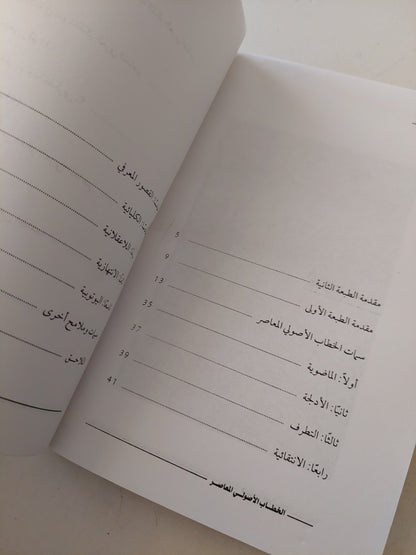 مقدمة الطبعة الثانية 5
مقدمة الطبعة الأولى 9
سمات الخطاب الأصولي المعاصر 13
أولاً: الماضوية 35
ثانيًا: الأدلجة 37
ثالثًا: التطرف 39
رابعًا: الانتقائية 41
الخطاب الأصولي المعاصر
القصور المعرفي
الكليانية
اللاعقلانية
الانتهازية
اليوتوبية
وملامح أخرى